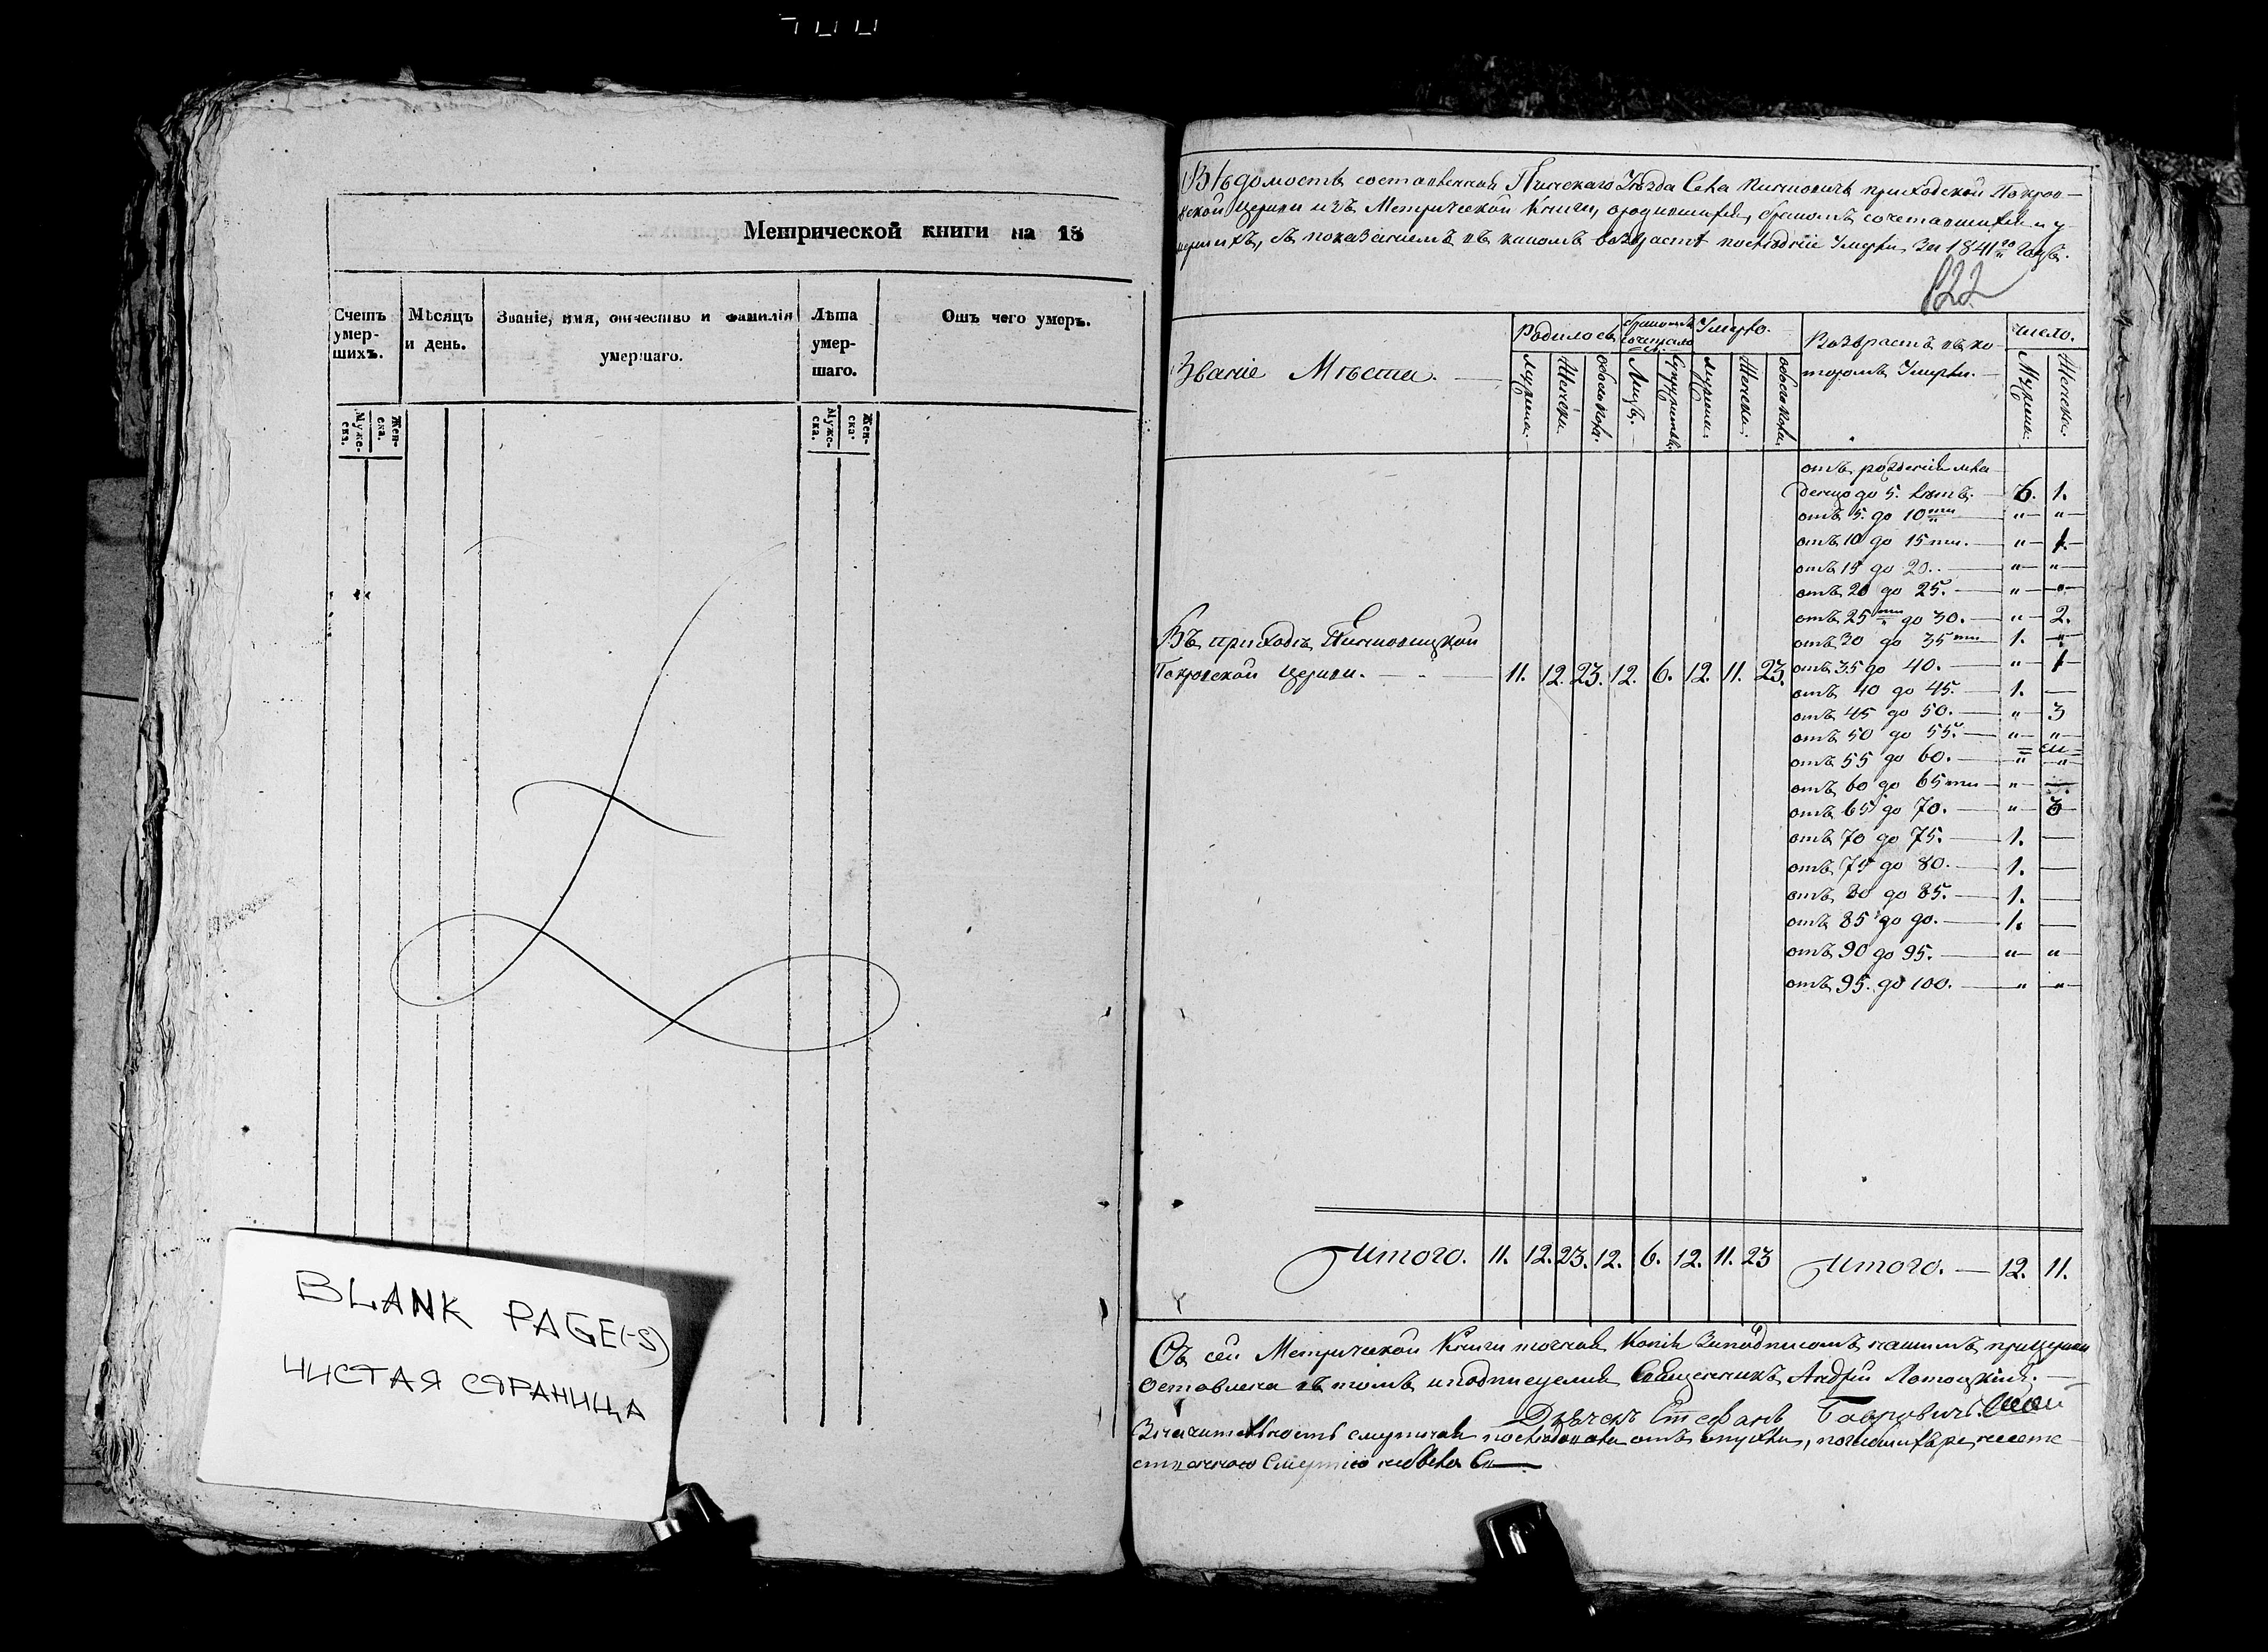 Метрической книги на 18
Счетъ умер-шихъ.
Мѣсяцъ и день.
Званіе, имя, отчество и фамилія умершаго.
Лѣта умер-шаго.
Отъ чего умеръ.
Муже-ска.
Жен-ска.
Муже-ска.
Жен-ска.
BLANK PAGE(-S)
ЧИСТАЯ СТРАНИЦА
Вѣдомость составленная Пинскаго Уѣзда Села приходской Покров-
ской Церкви изъ Метрической Книги, о родившихся, бракомъ сочетавшихся и у-
мершихъ, съ показаніемъ въ какомъ возрастѣ послѣдніе Умерли За 1841го Годъ.
122
Званіе Мѣста.
Родилось
бракомъ сочеталось
Умерло.
Возрастъ въ ко-
торомъ Умерли.
число.
Мужска. Женска. обоего пола. Лицъ. Супружествъ. Мужска. Женска. обоего пола. Мужска. Женска.
отъ рожденія мла
денца до 5. Лѣтъ. 6. 1.
отъ 5. до 10ти " "
отъ 10 до 15ти. " 1.
отъ 15 до 20.. " "
отъ 20 до 25. " "
отъ 25ти до 30. " 2.
отъ 30 до 35ти 1. "
Въ приходѣ
Покровской Церкви. 11. 12. 23. 12. 6. 12. 11. 23.
отъ 35 до 40. " 1
отъ 40 до 45. 1. —
отъ 45 до 50. " 3
отъ 50 до 55. " "
отъ 55 до 60. " "
отъ 60 до 65ти "
отъ 65 до 70. " 3
отъ 70 до 75. 1. —
отъ 75 до 80. 1. —
отъ 80 до 85. 1. —
отъ 85 до 90. 1. —
отъ 90 до 95. " "
отъ 95. до 100. " "
Итого. 11. 12. 23. 12. 6. 12. 11. 23 Итого. — 12. 11.
Съ сей Метрической Книги точная Копія За подписомъ нашимъ при церкви
оставлена въ томъ и подписуемся Священникъ Андрій Лотоцкій.
Дьячекъ Стефанъ
отъ опухли,